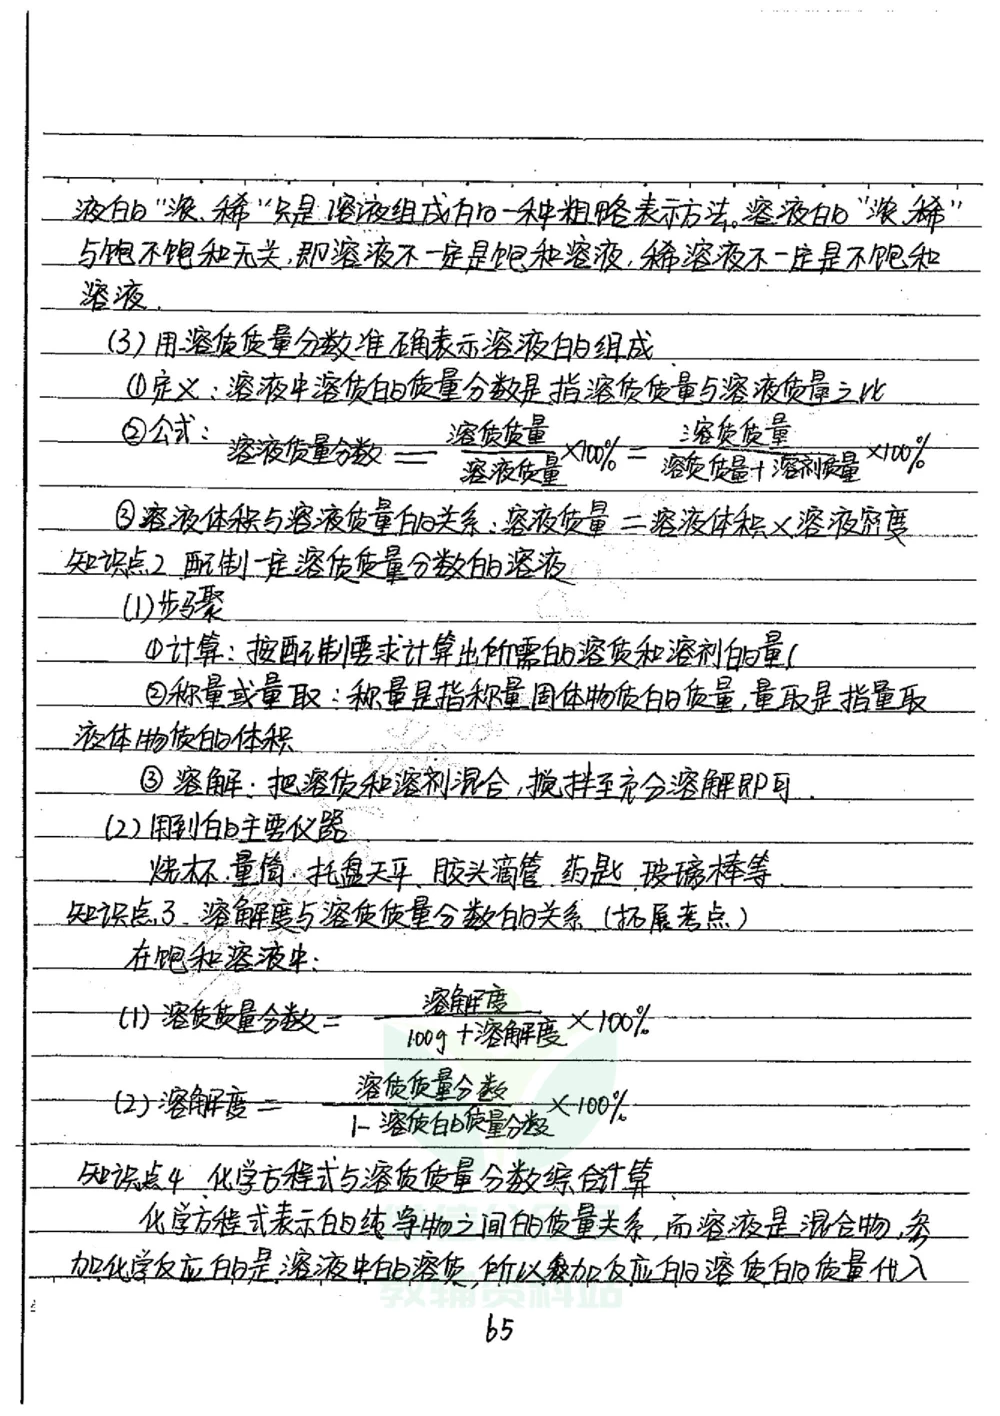 液的"浓、稀"只是溶液组成的一种粗略表示方法。溶液的"浓、稀"
与饱不饱和无关,即溶液不一定是饱和溶液,稀溶液不一定是不饱和
溶液.
(3)用溶质质量分数准确表示溶液的组成
①定义:溶液中溶质的质量分数是指溶质质量与溶液质量之比
②公式: 溶液质量分数 = 溶质质量/溶液质量 ×100% = 溶质质量/溶质质量+溶剂质量 ×100%
③溶液体积与溶液质量的关系:溶液质量=溶液体积×溶液密度
知识点2 配制一定溶质质量分数的溶液
(1)步骤
①计算:按配制要求计算出所需的溶质和溶剂的量(
②称量或量取:称量是指称量固体物质的质量,量取是指量取
液体物质的体积
③溶解:把溶质和溶剂混合,搅拌至充分溶解即可.
(2)用到的主要仪器
烧杯、量筒、托盘天平、胶头滴管、药匙、玻璃棒等
知识点3 溶解度与溶质质量分数的关系(拓展考点)
在饱和溶液中:
(1)溶质质量分数= 溶解度/100g+溶解度 ×100%
(2)溶解度= 溶质质量分数/1-溶质的质量分数 ×100%
知识点4 化学方程式与溶质质量分数综合计算
化学方程式表示的纯净物之间的质量关系,而溶液是混合物,参
加化学反应的是溶液中的溶质,所以参加反应的溶质的质量代入
教辅资料站
65